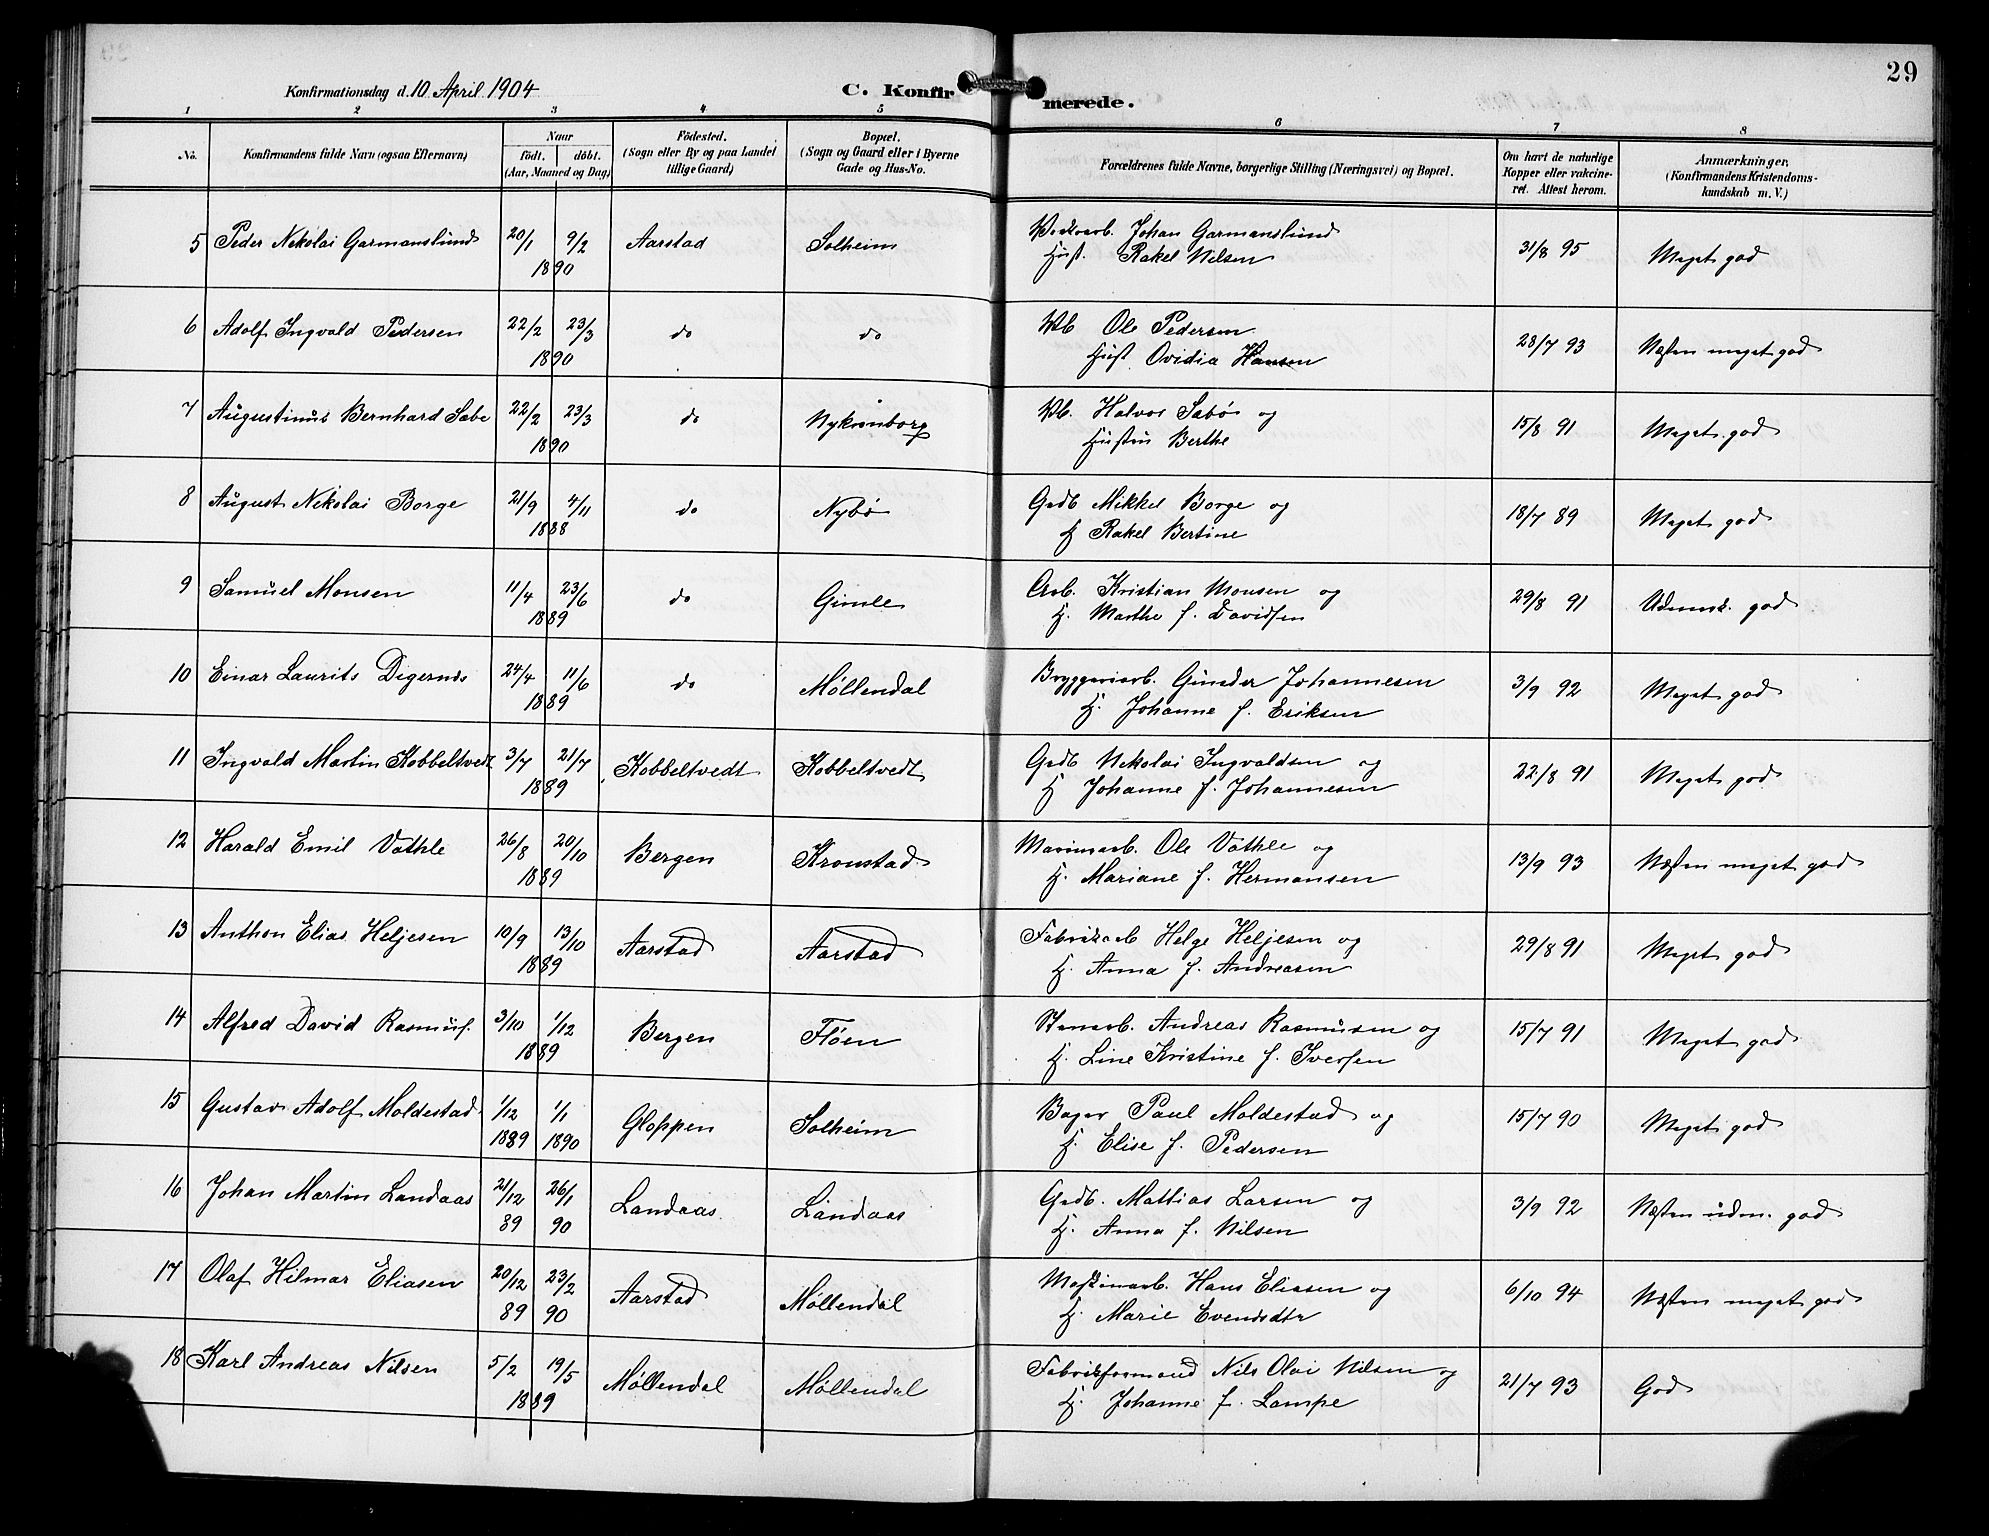 29
Konfirmationsdag d. 10 April 1904
C. Konfirmerede.
1 2 3 4 5 6 7 8
No.
Konfirmandens fulde Navn (ogsaa Efternavn)
Naar
födt. döbt.
(Aar, Maaned og Dag)
Födested.
(Sogn eller By og paa Landet
tillige Gaard)
Bopæl.
(Sogn og Gaard eller i Byerne
Gade og Hus-No.
Forældrenes fulde Navne, borgerlige Stilling (Næringsvei) og Bopæl.
Om havt de naturlige
Kopper eller vakcine-
ret. Attest herom.
Anmærkninger.
(Konfirmandens Kristendoms-
kundskab m. V.)
5 Peder Nikolai Garmanslund 20/1 9/2 1890 Aarstad Solheim
Johan Garmanslund
Hust. Rakel Nilsen 31/8 95 Meget god
6 Adolf Ingvald Pedersen 22/2 23/3 1890 do do
Vb Ole Pedersen
Hust Ovidia Hansen 28/7 93 Næsten meget god
7 Augustinus Bernhard Sabø 22/2 23/3 1890 do Nykronborg
Vb. Halvor Sabø og
Hustru Berthe 15/8 91 Meget god
8 August Nikolai Borge 21/9 4/11 1888 do Nybø
Grdb Mikkel Borge og
H Rakel Bertine 18/7 89 Meget god
9 Samuel Monsen 11/4 23/6 1889 do Gimle
Arb. Kristian Monsen og
H. Marthe f. Davidsen 29/8 91 Udmerk. god
10 Einar Laurits Digernes 24/4 11/6 1889 do Møllendal
Bryggeriarb. Gunder Johannesen
H. Johanne f. Eriksen 3/9 92 Meget god
11 Ingvald Martin Kobbeltvedt 3/7 21/7 1889 Kobbeltvedt Kobbeltvedt
Grdb Nikolai Ingvaldsen og
H Johanne f. Johannesen 22/8 91 Meget god
12 Harald Emil Vathle 26/8 20/10 1889 Bergen Kronstad
Ole Vathle og
H. Mariane f. Hermansen 13/9 93 Næsten meget god
13 Anthon Elias Heljesen 10/9 13/10 1889 Aarstad Aarstad
Fabrikarb Helge Heljesen og
H. Anna f. Andreasen 29/8 91 Meget god
14 Alfred David Rasmus. 3/10 1/12 1889 Bergen Fløen
Stenarb. Andreas Rasmussen og
H. Line Kristine f. Iversen 15/7 91 Meget god
15 Gustav Adolf Moldestad 1/12 1889 1/1 1890 Gloppen Solheim
Bager Paul Moldestad og
H. Elise f. Pedersen 15/7 90 Meget god
16 Johan Martin Landaas 21/12 89 26/1 90 Landaas Landaas
Grdb. Mattias Larsen og
H. Anna f. Nilsen 3/9 92 Næsten udm. god
17 Olaf Hilmar Eliasen 20/12 89 23/2 90 Aarstad Møllendal
Maskinarb. Hans Eliasen og
H. Marie Evensdtr 6/10 94 Næsten meget god
18 Karl Andreas Nilsen 5/2 19/5 1889 Møllendal Møllendal
Fabrikformand Nils Olai Nilsen og
H. Johanne f. Lampe 21/7 93 God